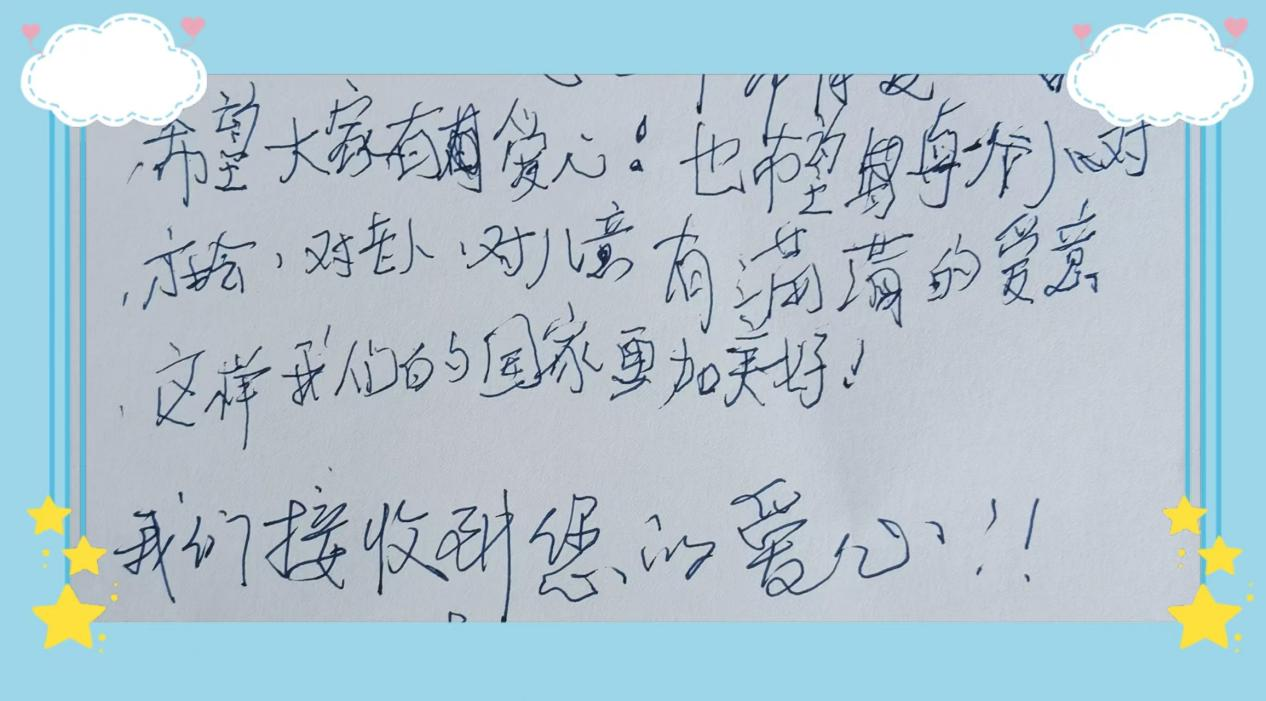 希望大家有爱心！也希望每个人对
社会，对老人，对儿童有满满的爱意
这样我们的国家更加美好！
我们接收到您的爱心！！